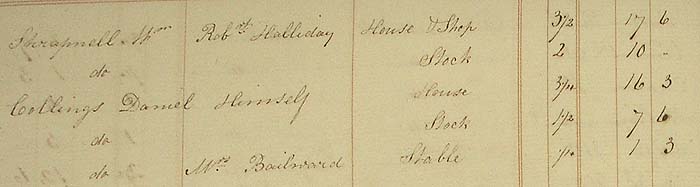 Shrapnell Wm Robt Halliday House & Shop 3½ 17 6
do Stock 2 10 -
Collings Daniel Himself House 3¼ 16 3
do Stock 1½ 7 6
do Mrs Bailward Stable ¼ 1 3